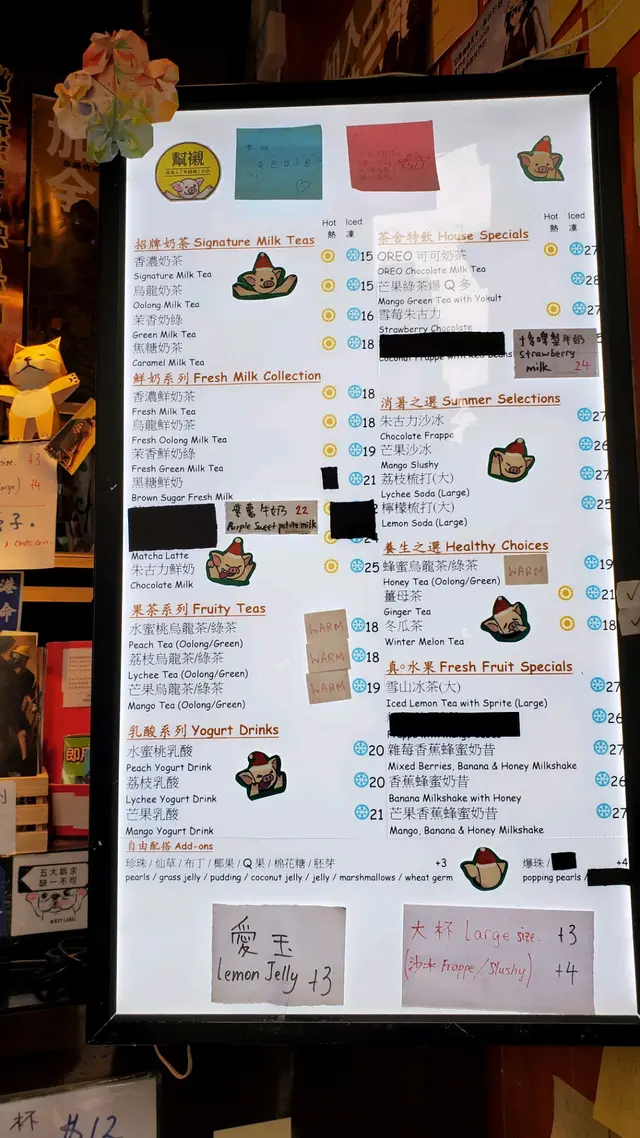 幫襯
Hot Iced
熱 凍
招牌奶茶 Signature Milk Teas
香濃奶茶 15
Signature Milk Tea
烏龍奶茶 15
Oolong Milk Tea
茉香奶綠 16
Green Milk Tea
焦糖奶茶 18
Caramel Milk Tea
鮮奶系列 Fresh Milk Collection
香濃鮮奶茶 18
Fresh Milk Tea
烏龍鮮奶茶 18
Fresh Oolong Milk Tea
茉香鮮奶綠 19
Fresh Green Milk Tea
黑糖鮮奶 21
Brown Sugar Fresh Milk
紫薯牛奶 22
Purple Sweet potato milk
Matcha Latte
朱古力鮮奶 25
Chocolate Milk
果茶系列 Fruity Teas
水蜜桃烏龍茶/綠茶 WARM 18
Peach Tea (Oolong/Green)
荔枝烏龍茶/綠茶 WARM 18
Lychee Tea (Oolong/Green)
芒果烏龍茶/綠茶 WARM 19
Mango Tea (Oolong/Green)
乳酸系列 Yogurt Drinks
水蜜桃乳酸 20
Peach Yogurt Drink
荔枝乳酸 20
Lychee Yogurt Drink
芒果乳酸 21
Mango Yogurt Drink
Hot Iced
熱 凍
茶舍特飲 House Specials
OREO 可可奶茶 27
OREO Chocolate Milk Tea
芒果綠茶爆Q多 28
Mango Green Tea with Yakult
雪莓朱古力 27
Strawberry Chocolate
Coconut Frappe with Red Beans
牛奶
Strawberry
milk 24
消暑之選 Summer Selections
朱古力沙冰 27
Chocolate Frappe
芒果沙冰 26
Mango Slushy
荔枝梳打(大) 27
Lychee Soda (Large)
檸檬梳打(大) 25
Lemon Soda (Large)
養生之選 Healthy Choices
蜂蜜烏龍茶/綠茶 WARM 19
Honey Tea (Oolong/Green)
薑母茶 21
Ginger Tea
冬瓜茶 18
Winter Melon Tea
真。水果 Fresh Fruit Specials
雪山冰茶(大) 27
Iced Lemon Tea with Sprite (Large)
26
雜莓香蕉蜂蜜奶昔 27
Mixed Berries, Banana & Honey Milkshake
香蕉蜂蜜奶昔 26
Banana Milkshake with Honey
芒果香蕉蜂蜜奶昔 27
Mango, Banana & Honey Milkshake
自由配搭 Add-ons
珍珠 / 仙草 / 布丁 / 椰果 / Q果 / 棉花糖 / 胚芽 +3
pearls / grass jelly / pudding / coconut jelly / jelly / marshmallows / wheat germ
爆珠 / +4
popping pearls /
愛玉
Lemon Jelly +3
大杯 Large size. +3
(沙冰 Frappe/Slushy) +4
五大訴求
缺一不可
杯 $12